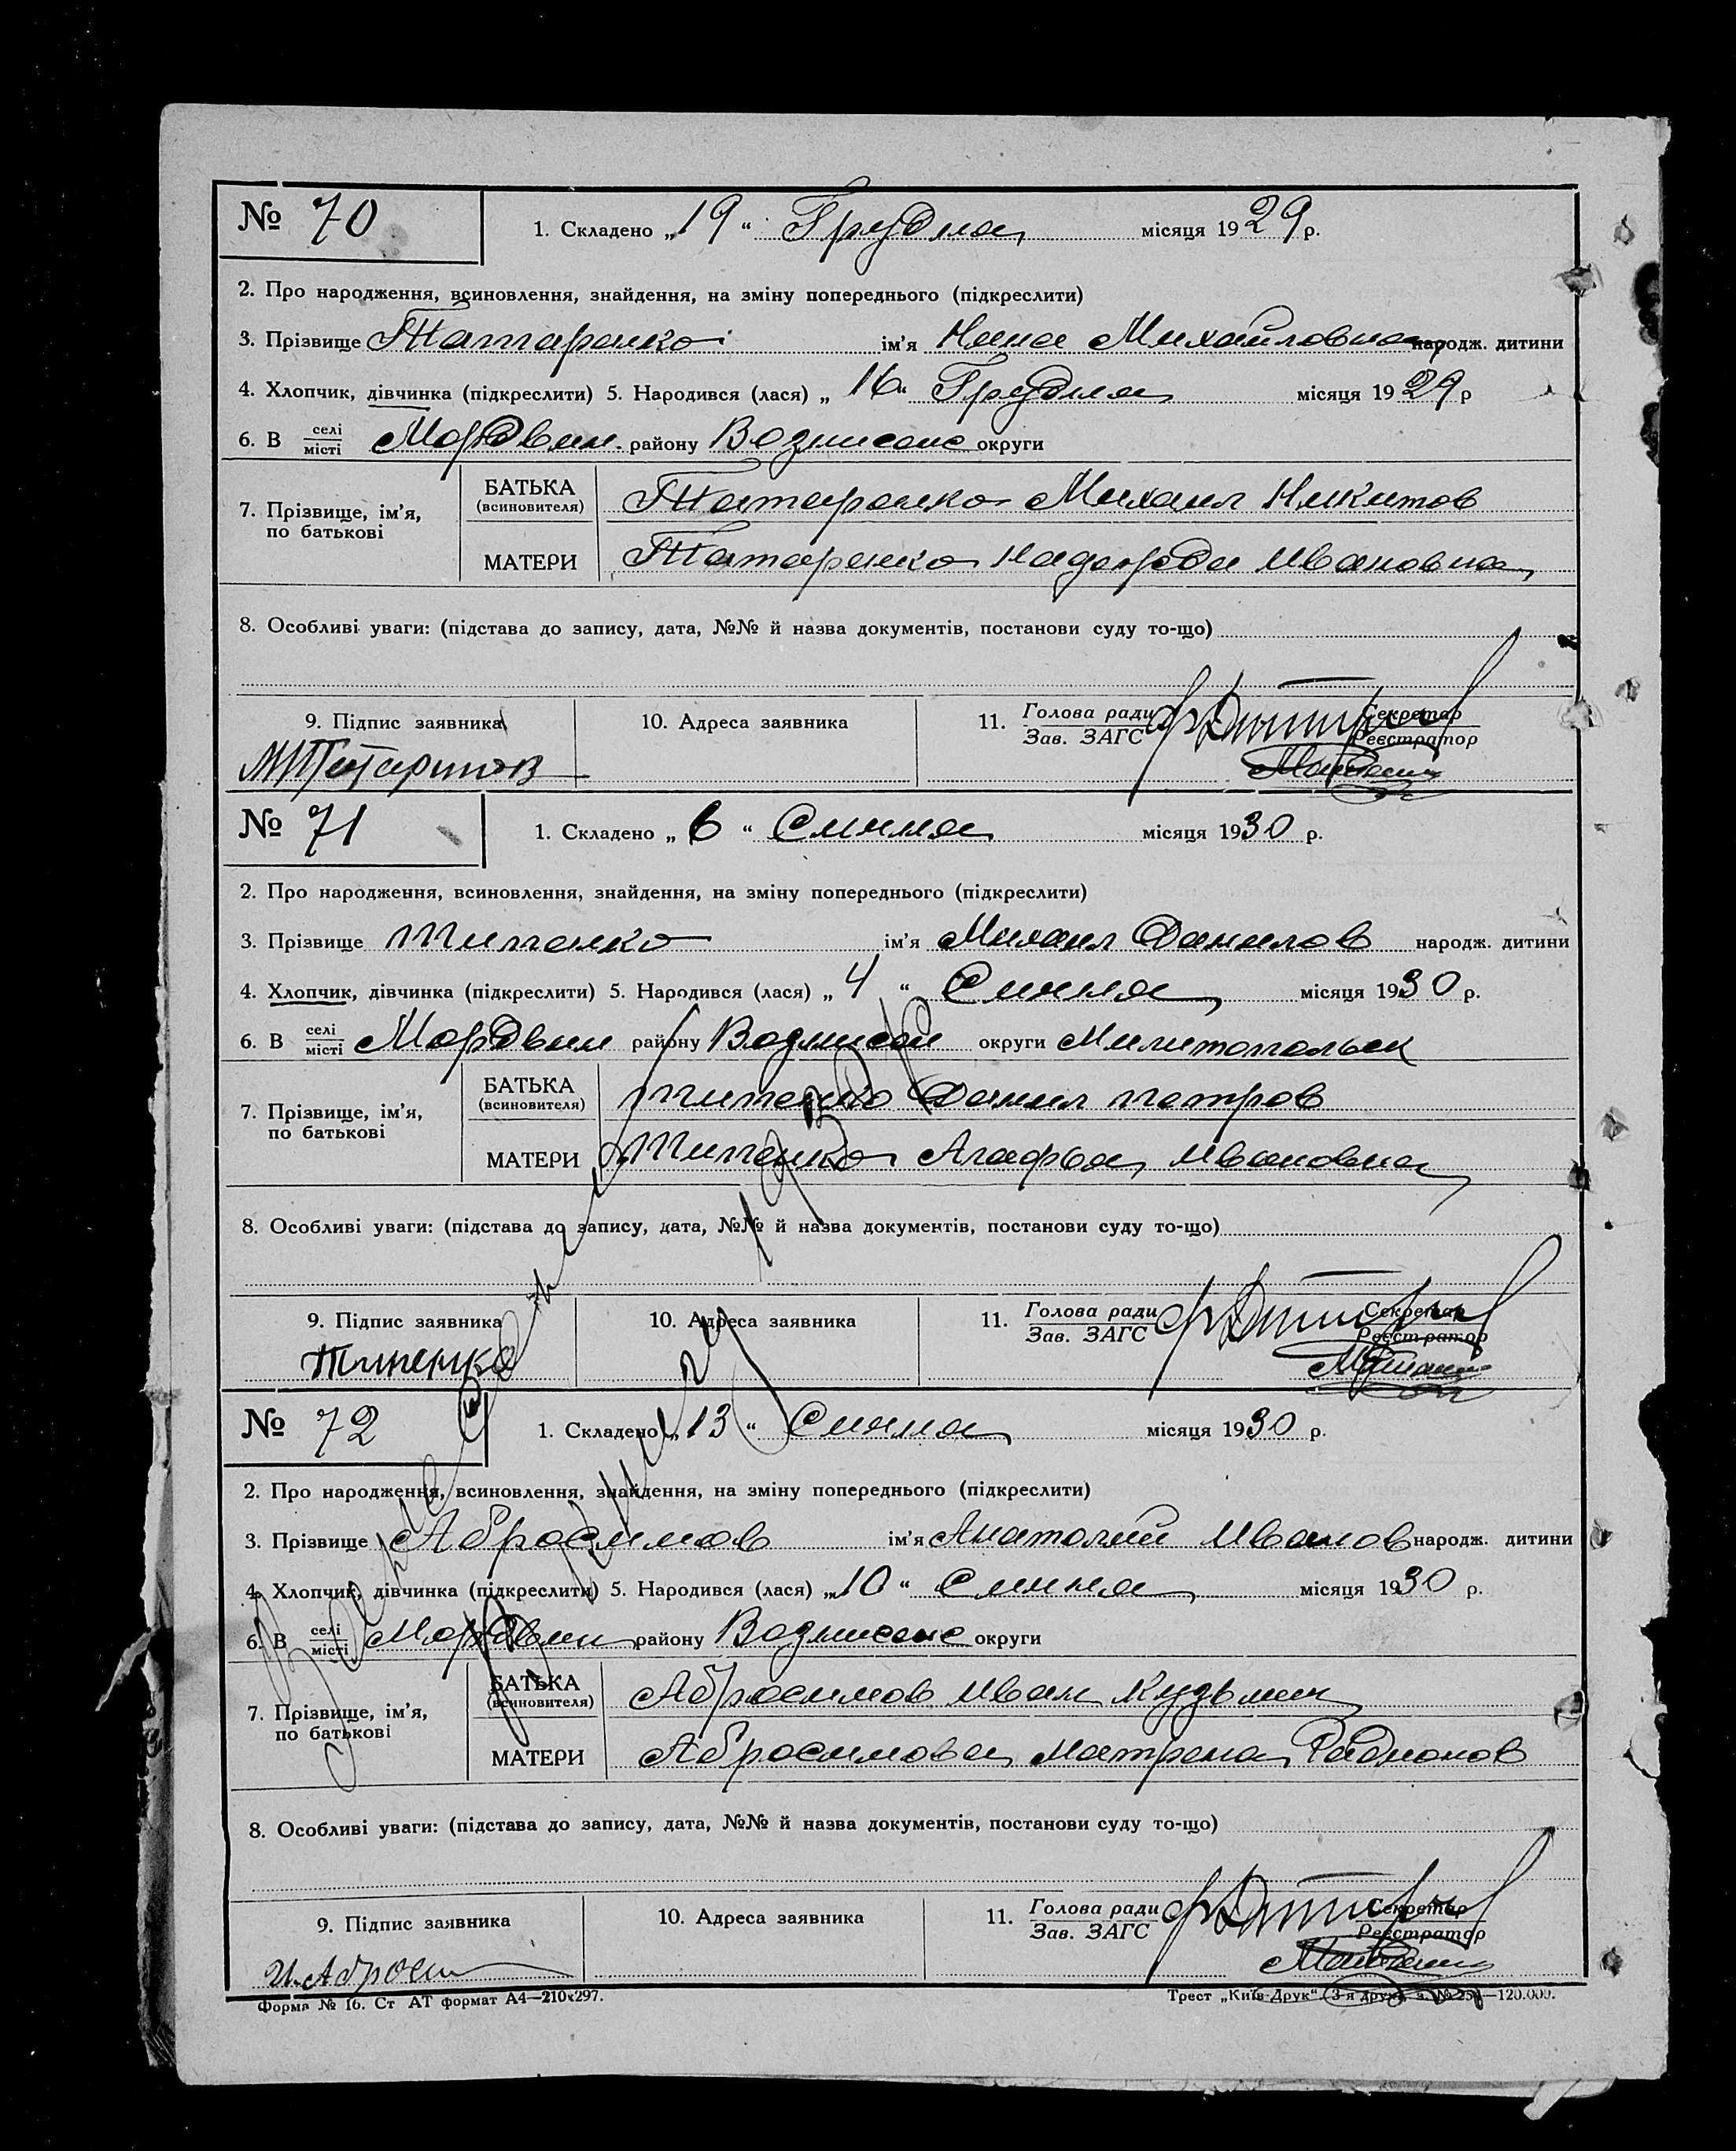 № 70 1. Складено „19“ Грудня місяця 1929 р.
2. Про народження, всиновлення, знайдення, на зміну попереднього (підкреслити)
3. Прізвище Татаренко ім'я Нина Михайловна народж. дитини
4. Хлопчик, дівчинка (підкреслити) 5. Народився (лася) „16“ Грудня місяця 1929 р
6. В селі місті Мордвин. району Вознисенс округи
7. Прізвище, ім'я, по батькові БАТЬКА (всиновителя) Татаренко Михаил Никитов
МАТЕРИ Татаренко Надежда Ивановна
8. Особливі уваги: (підстава до запису, дата, №№ й назва документів, постанови суду то-що)
9. Підпис заявника 10. Адреса заявника 11. Голова ради Зав. ЗАГС Секретар Реєстратор
№ 71 1. Складено „6“ Сичня місяця 1930 р.
2. Про народження, всиновлення, знайдення, на зміну попереднього (підкреслити)
3. Прізвище Типенко ім'я Михаил Данилов народж. дитини
4. Хлопчик, дівчинка (підкреслити) 5. Народився (лася) „4“ Сичня місяця 1930 р.
6. В селі місті Мордвин району Вознисен округи Милитопольск
7. Прізвище, ім'я, по батькові БАТЬКА (всиновителя) Типенко Данил Петров
МАТЕРИ Типенко Агафья Ивановна
8. Особливі уваги: (підстава до запису, дата, №№ й назва документів, постанови суду то-що)
9. Підпис заявника 10. Адреса заявника 11. Голова ради Зав. ЗАГС Секретар Реєстратор
Типенко
№ 72 1. Складено „13“ Сичня місяця 1930 р.
2. Про народження, всиновлення, знайдення, на зміну попереднього (підкреслити)
3. Прізвище Абросимов ім'я Анатолий Иванов народж. дитини
4. Хлопчик, дівчинка (підкреслити) 5. Народився (лася) „10“ Сичня місяця 1930 р.
6. В селі місті Мордвин району Вознисенс округи
7. Прізвище, ім'я, по батькові БАТЬКА (всиновителя) Абросимов Иван Кузьмич
МАТЕРИ Абросимова Матрена Радионов
8. Особливі уваги: (підстава до запису, дата, №№ й назва документів, постанови суду то-що)
9. Підпис заявника 10. Адреса заявника 11. Голова ради Зав. ЗАГС Секретар Реєстратор
Форма № 16. Ст АТ формат А4—210х297. Трест „Київ-Друк“. 3-я друк. —120.000.